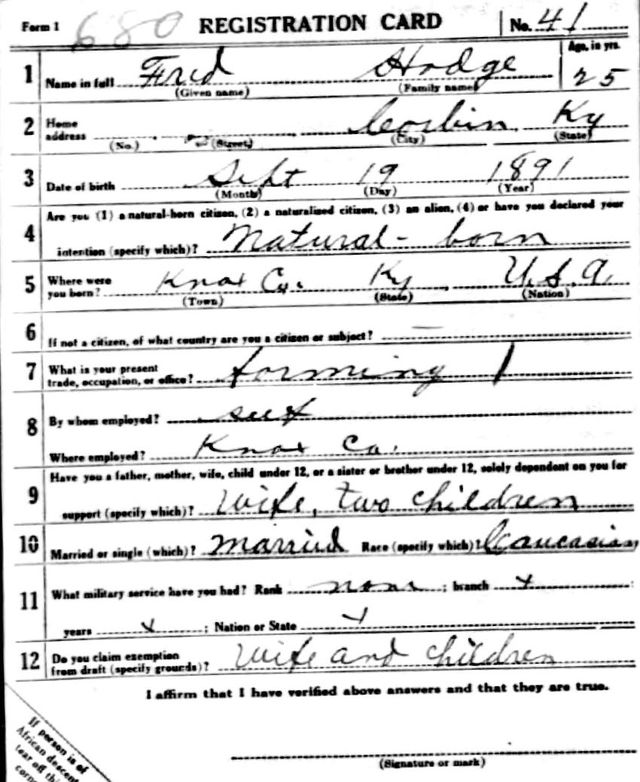 Form 1 680 REGISTRATION CARD No. 41
1 Name in full Fred Hodge Age, in yrs. 25
(Given name) (Family name)
2 Home address Corbin Ky
(No.) (Street) (City) (State)
3 Date of birth Sept 19 1891
(Month) (Day) (Year)
4 Are you (1) a natural-born citizen, (2) a naturalized citizen, (3) an alien, (4) or have you declared your
intention (specify which)? Natural-born
5 Where were you born? Knox Co. Ky U.S.A.
(Town) (State) (Nation)
6 If not a citizen, of what country are you a citizen or subject? —
7 What is your present trade, occupation, or office? forming 1
8 By whom employed? self
Where employed? Knox Co.
9 Have you a father, mother, wife, child under 12, or a sister or brother under 12, solely dependent on you for
support (specify which)? Wife, two children
10 Married or single (which)? Married Race (specify which)? Caucasian
11 What military service have you had? Rank none ; branch x ;
years x ; Nation or State x
12 Do you claim exemption from draft (specify grounds)? Wife and children
I affirm that I have verified above answers and that they are true.
(Signature or mark)
If person is of
African descent
tear off this
corner